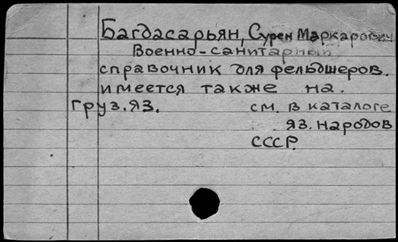 Багдасарьян, Сурен Маркарович
Военно-санитарный
справочник для фельдшеров.
имеется также на.
Груз.яз. см. в каталоге
яз. народов
СССР.